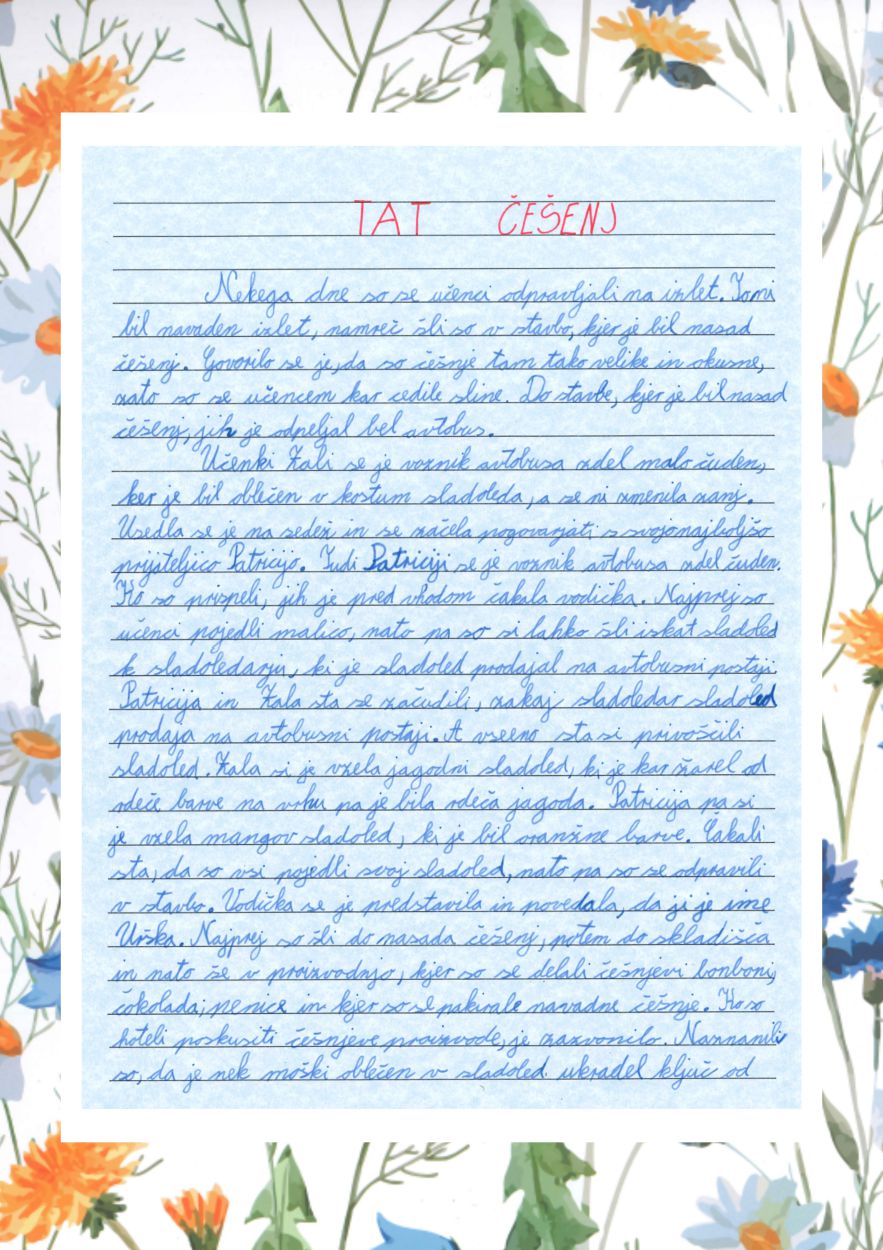 TAT ČEŠENJ
Nekega dne so se učenci odpravljali na izlet. To ni
bil navaden izlet, namreč šli so v stavbo, kjer je bil nasad
češenj. Govorilo se je, da so češnje tam tako velike in okusne,
zato so se učencem kar cedile sline. Do stavbe, kjer je bil nasad
češenj, jih je odpeljal bel avtobus.
Učenki Zali se je voznik avtobusa zdel malo čuden,
ker je bil oblečen v kostum sladoleda, a se ni zmenila zanj.
Usedla se je na sedež in se začela pogovarjati s svojo najboljšo
prijateljico Patricijo. Tudi Patriciji se je voznik avtobusa zdel čuden.
Ko so prispeli, jih je pred vhodom čakala vodička. Najprej so
učenci pojedli malico, nato pa so si lahko šli iskat sladoled
k sladoledarju, ki je sladoled prodajal na avtobusni postaji.
Patricija in Zala sta se začudili, zakaj sladoledar sladoled
prodaja na avtobusni postaji. A vseeno sta si privoščili
sladoled. Zala si je vzela jagodni sladoled, ki je kar žarel od
rdeče barve na vrhu pa je bila rdeča jagoda. Patricija pa si
je vzela mangov sladoled, ki je bil oranžne barve. Čakali
sta, da so vsi pojedli svoj sladoled, nato pa so se odpravili
v stavbo. Vodička se je predstavila in povedala, da ji je ime
Urška. Najprej so šli do nasada češenj, potem do skladišča
in nato še v proizvodnjo, kjer so se delali češnjevi bonboni,
čokolada, penice in kjer so se pakirale navadne češnje. Ko so
hoteli poskusiti češnjeve proizvode, je zazvonilo. Naznanili
so, da je nek moški oblečen v sladoled ukradel ključ od